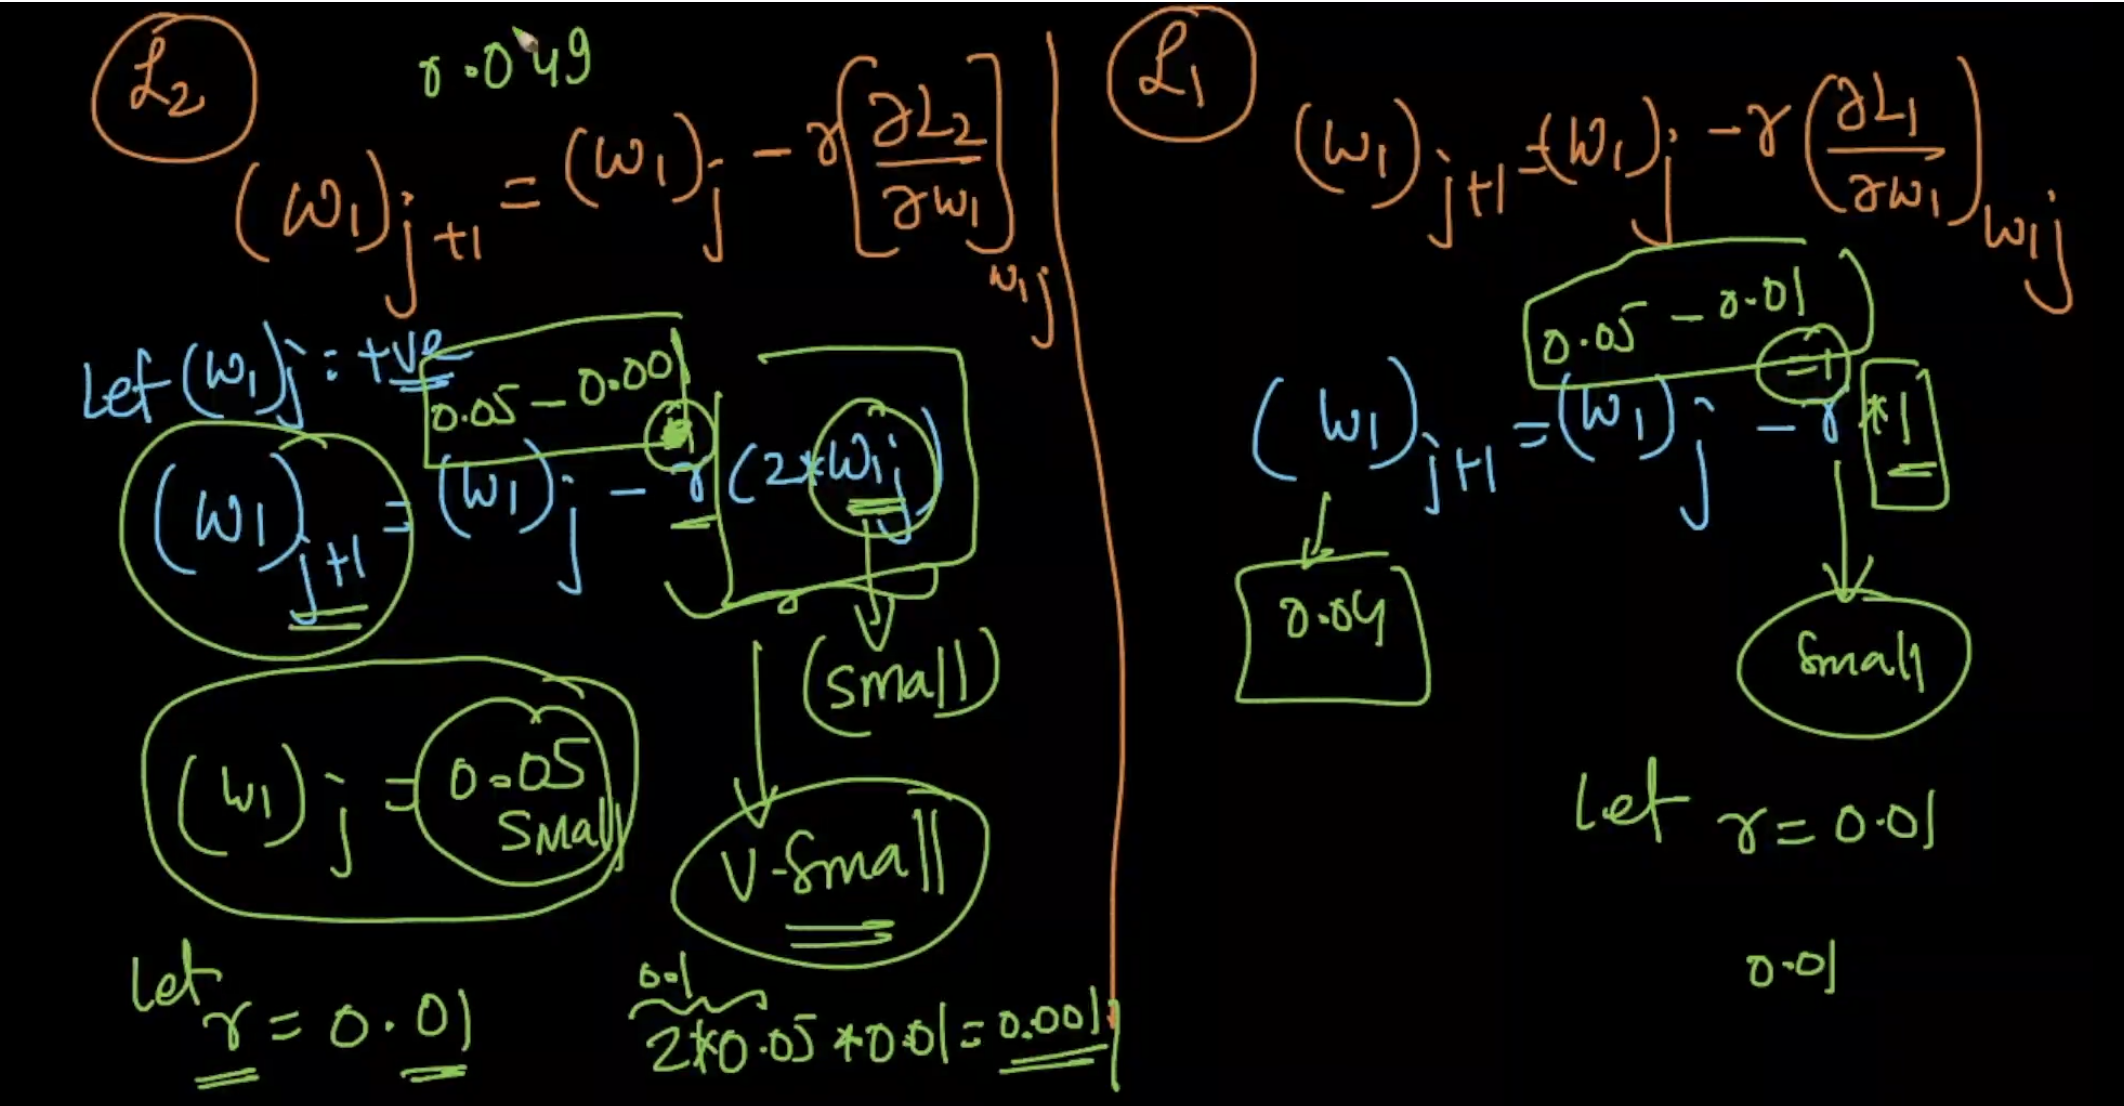 L2
0.049
(w1)j+1 = (w1)j - r[∂L2/∂w1]w1j
Let (w1)j : +ve
0.05 - 0.001
(w1)j+1 = (w1)j - r(2*w1j)
(Small)
(w1)j = 0.05
Small
V-Small
Let
r = 0.01
0.1
2*0.05*0.01 = 0.001
L1
(w1)j+1 = (w1)j - r(∂L1/∂w1)w1j
0.05 - 0.01
=1
(w1)j+1 = (w1)j - r *1
0.04
Small
Let r = 0.01
0.01